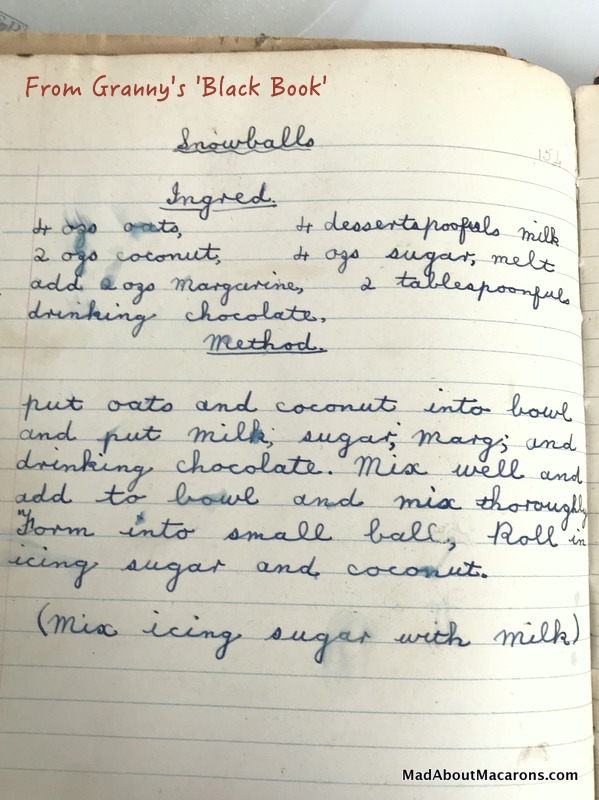 From Granny's 'Black Book'
Snowballs
152
Ingred.
4 ozs oats, 4 dessertspoofuls milk
2 ozs coconut, 4 ozs sugar, melt
add 2 ozs margarine, 2 tablespoonfuls
drinking chocolate.
Method.
put oats and coconut into bowl
and put milk, sugar, marg, and
drinking chocolate. Mix well and
add to bowl and mix thoroughly
Form into small ball, Roll in
icing sugar and coconut.
(Mix icing sugar with milk)
MadAboutMacarons.com